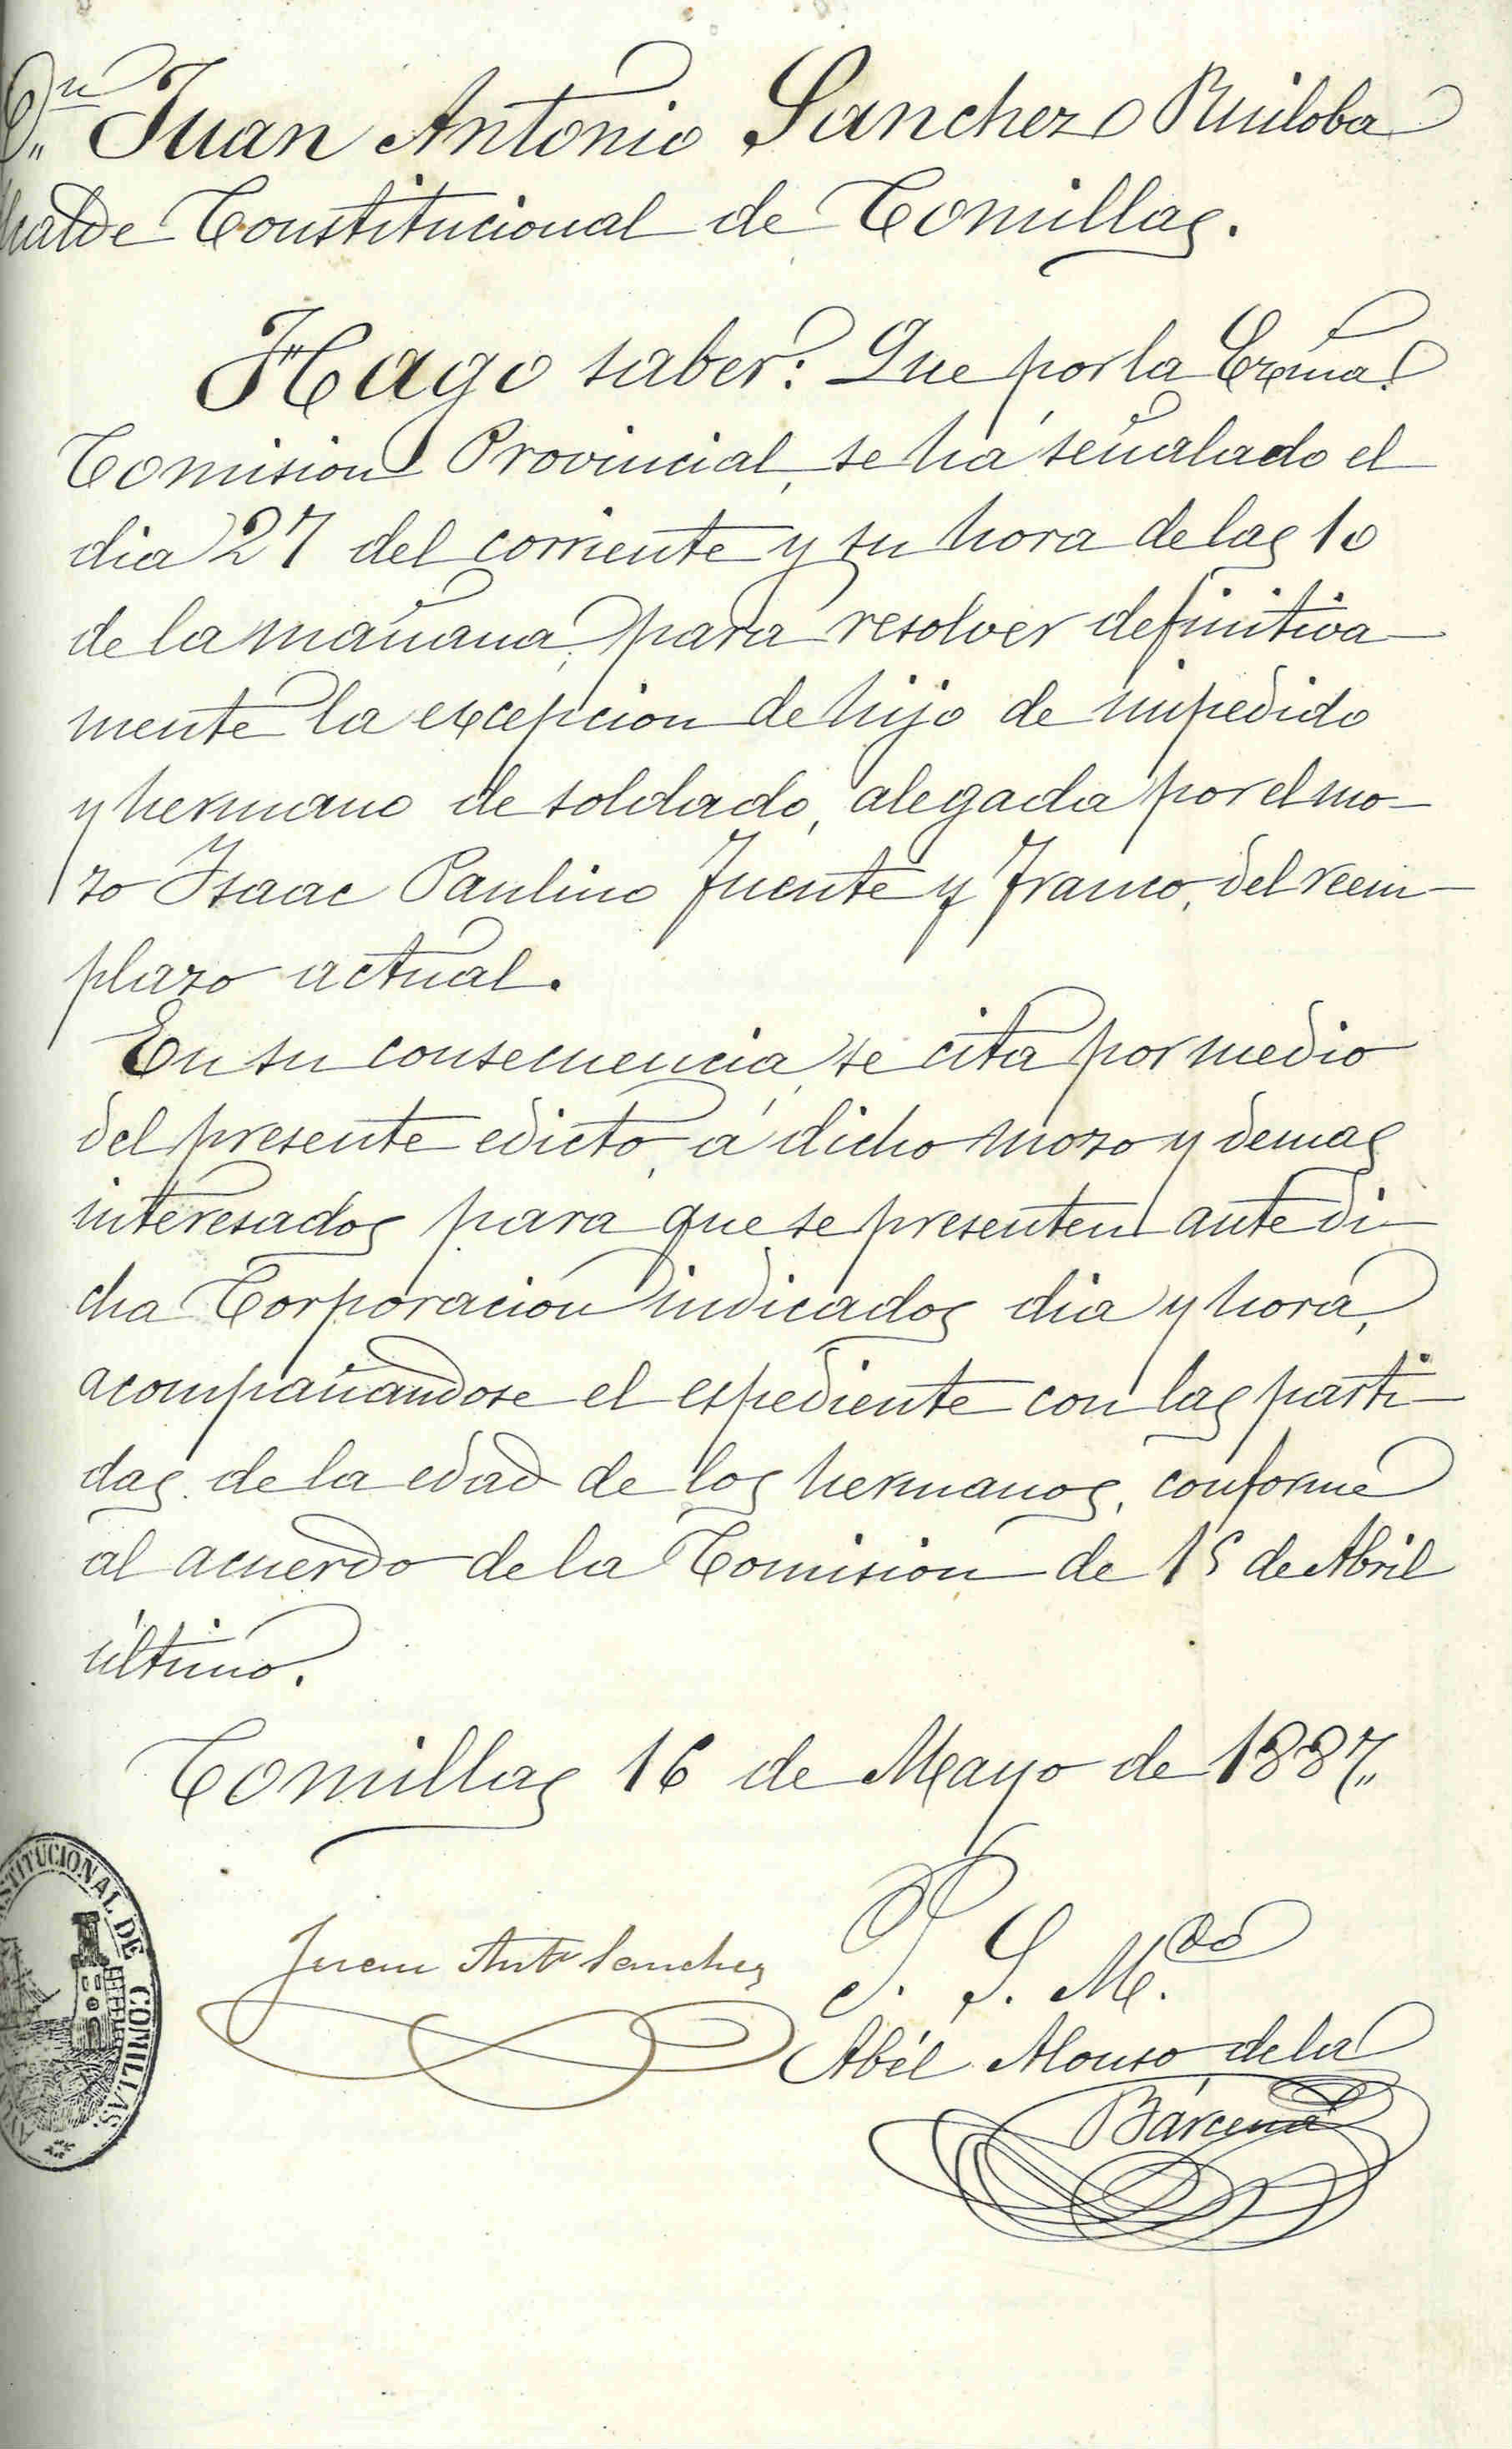 Dn. Juan Antonio Sanchez Ruiloba
alcalde Constitucional de Comillas.
Hago saber: Que por la Excma.
Comision Provincial, se ha señalado el
dia 27 del corriente y su hora de las 10
de la mañana, para resolver definitiva
mente la excepcion de hijo de impedido
y hermano de soldado, alegada por el mo-
zo Isaac Paulino Fuente y Franco, del reem-
plazo actual.
En su consecuencia, se cita por medio
del presente edicto, á dicho mozo y demas
interesados para que se presenten ante di-
cha Corporacion indicados dia y hora,
acompañandose el espediente con las parti-
das de la edad de los hermanos, conforme
al acuerdo de la Comision de 15 de Abril
último.
Comillas 16 de Mayo de 1887.,
STITUCIONAL DE COMILLAS
Juan Anto Sanchez
P. S. Mdo.
Abél Alonso de la
Bárcena